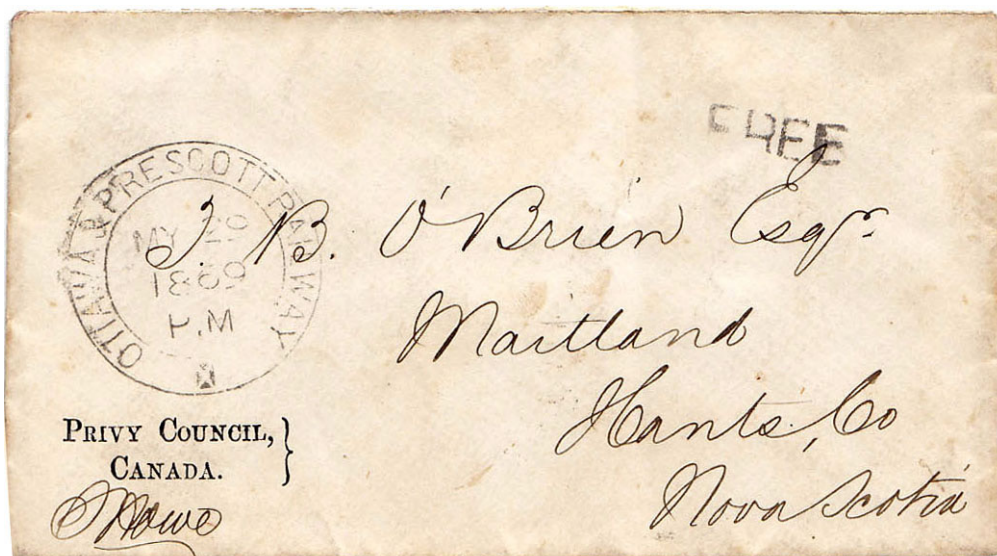 FREE
OTTAWA & PRESCOTT RAILWAY
MY 29
1869
P.M
J. B. O'Brien Esqr.
Maitland
Hants, Co
Nova Scotia
PRIVY COUNCIL,
CANADA.
JHowe